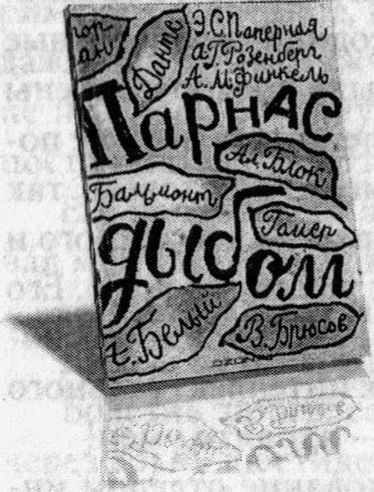 Данте
Э.С.Паперная
А.Г.Розенберг
А.М.Финкель
Парнас
Ал.Блок
Бальмонт
Гомер
дыбом
А.Белый
В.Брюсов